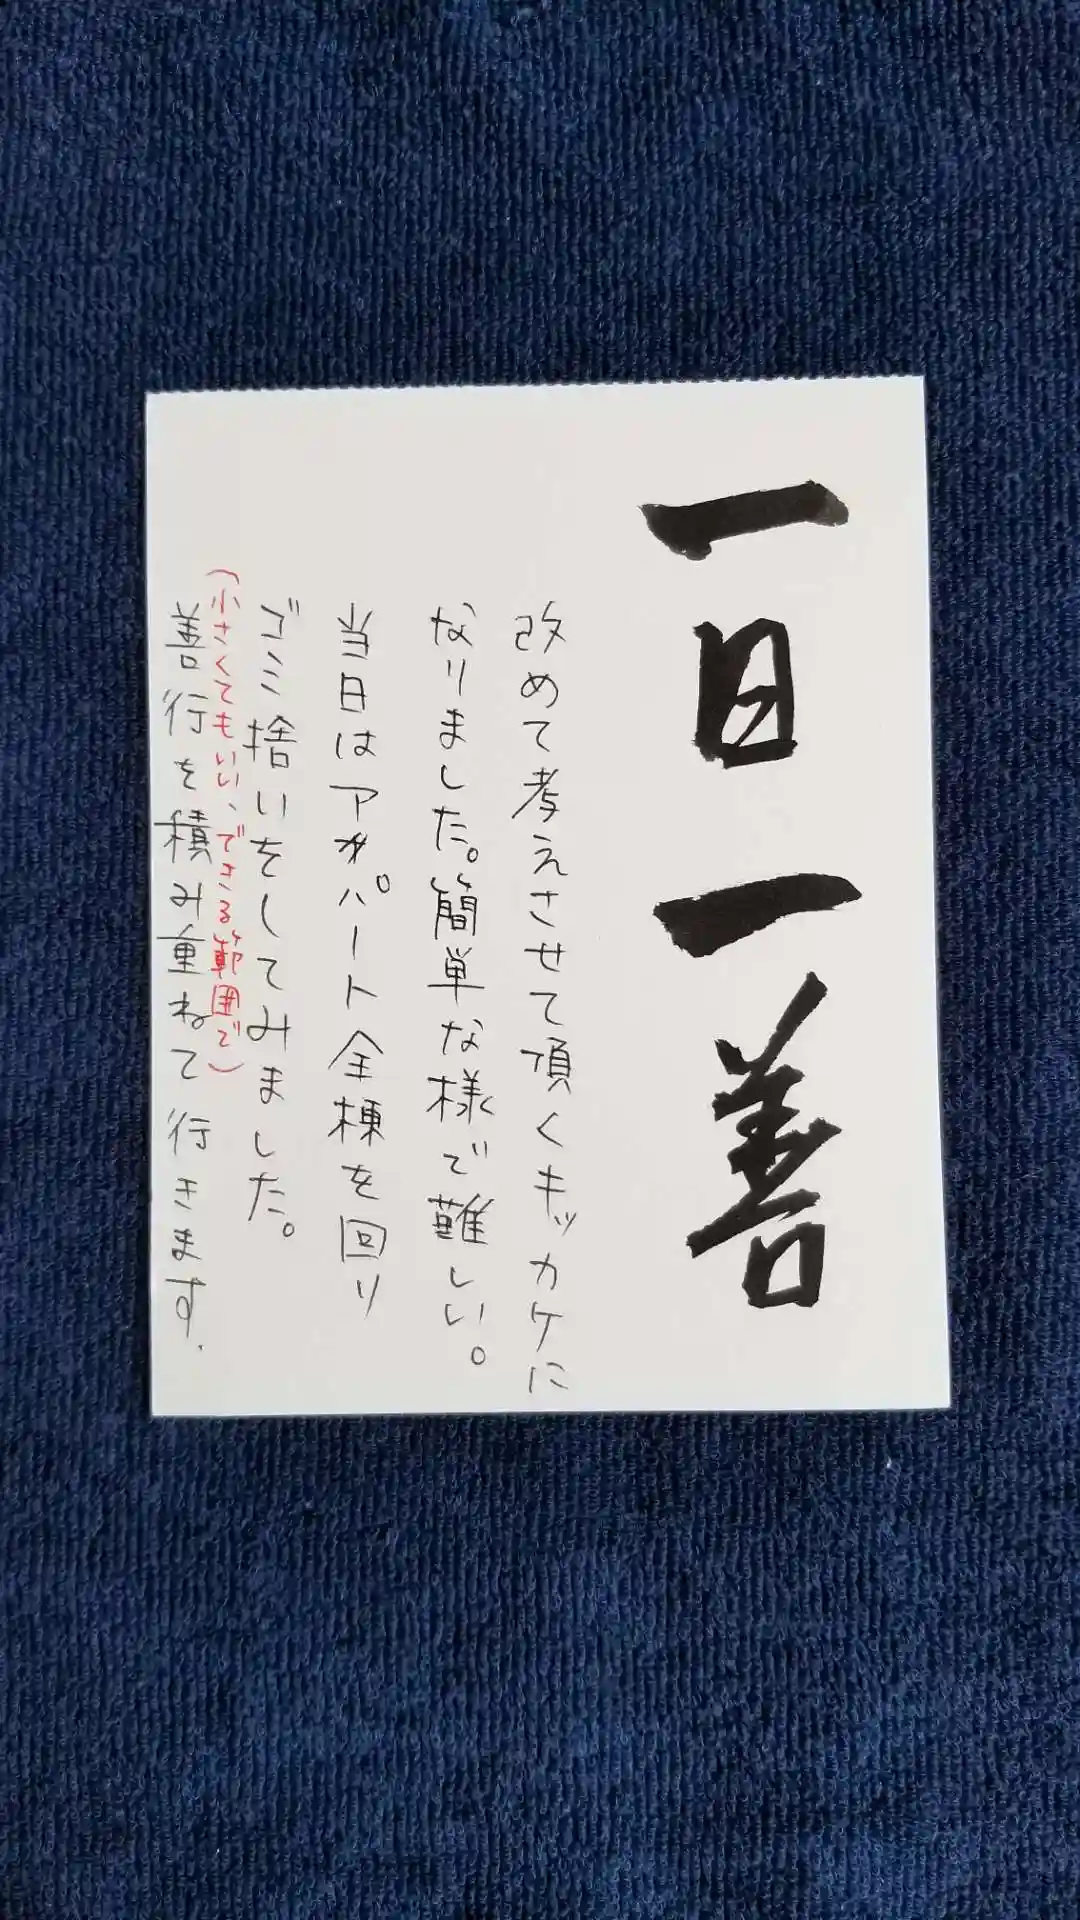 一日一善
改めて考えさせて頂くキッカケに
なりました。簡単な様で難しい。
当日はアパート全棟を回り
ゴミ捨いをしてみました。
(小さくてもいい、できる範囲で)
善行を積み重ねて行きます.